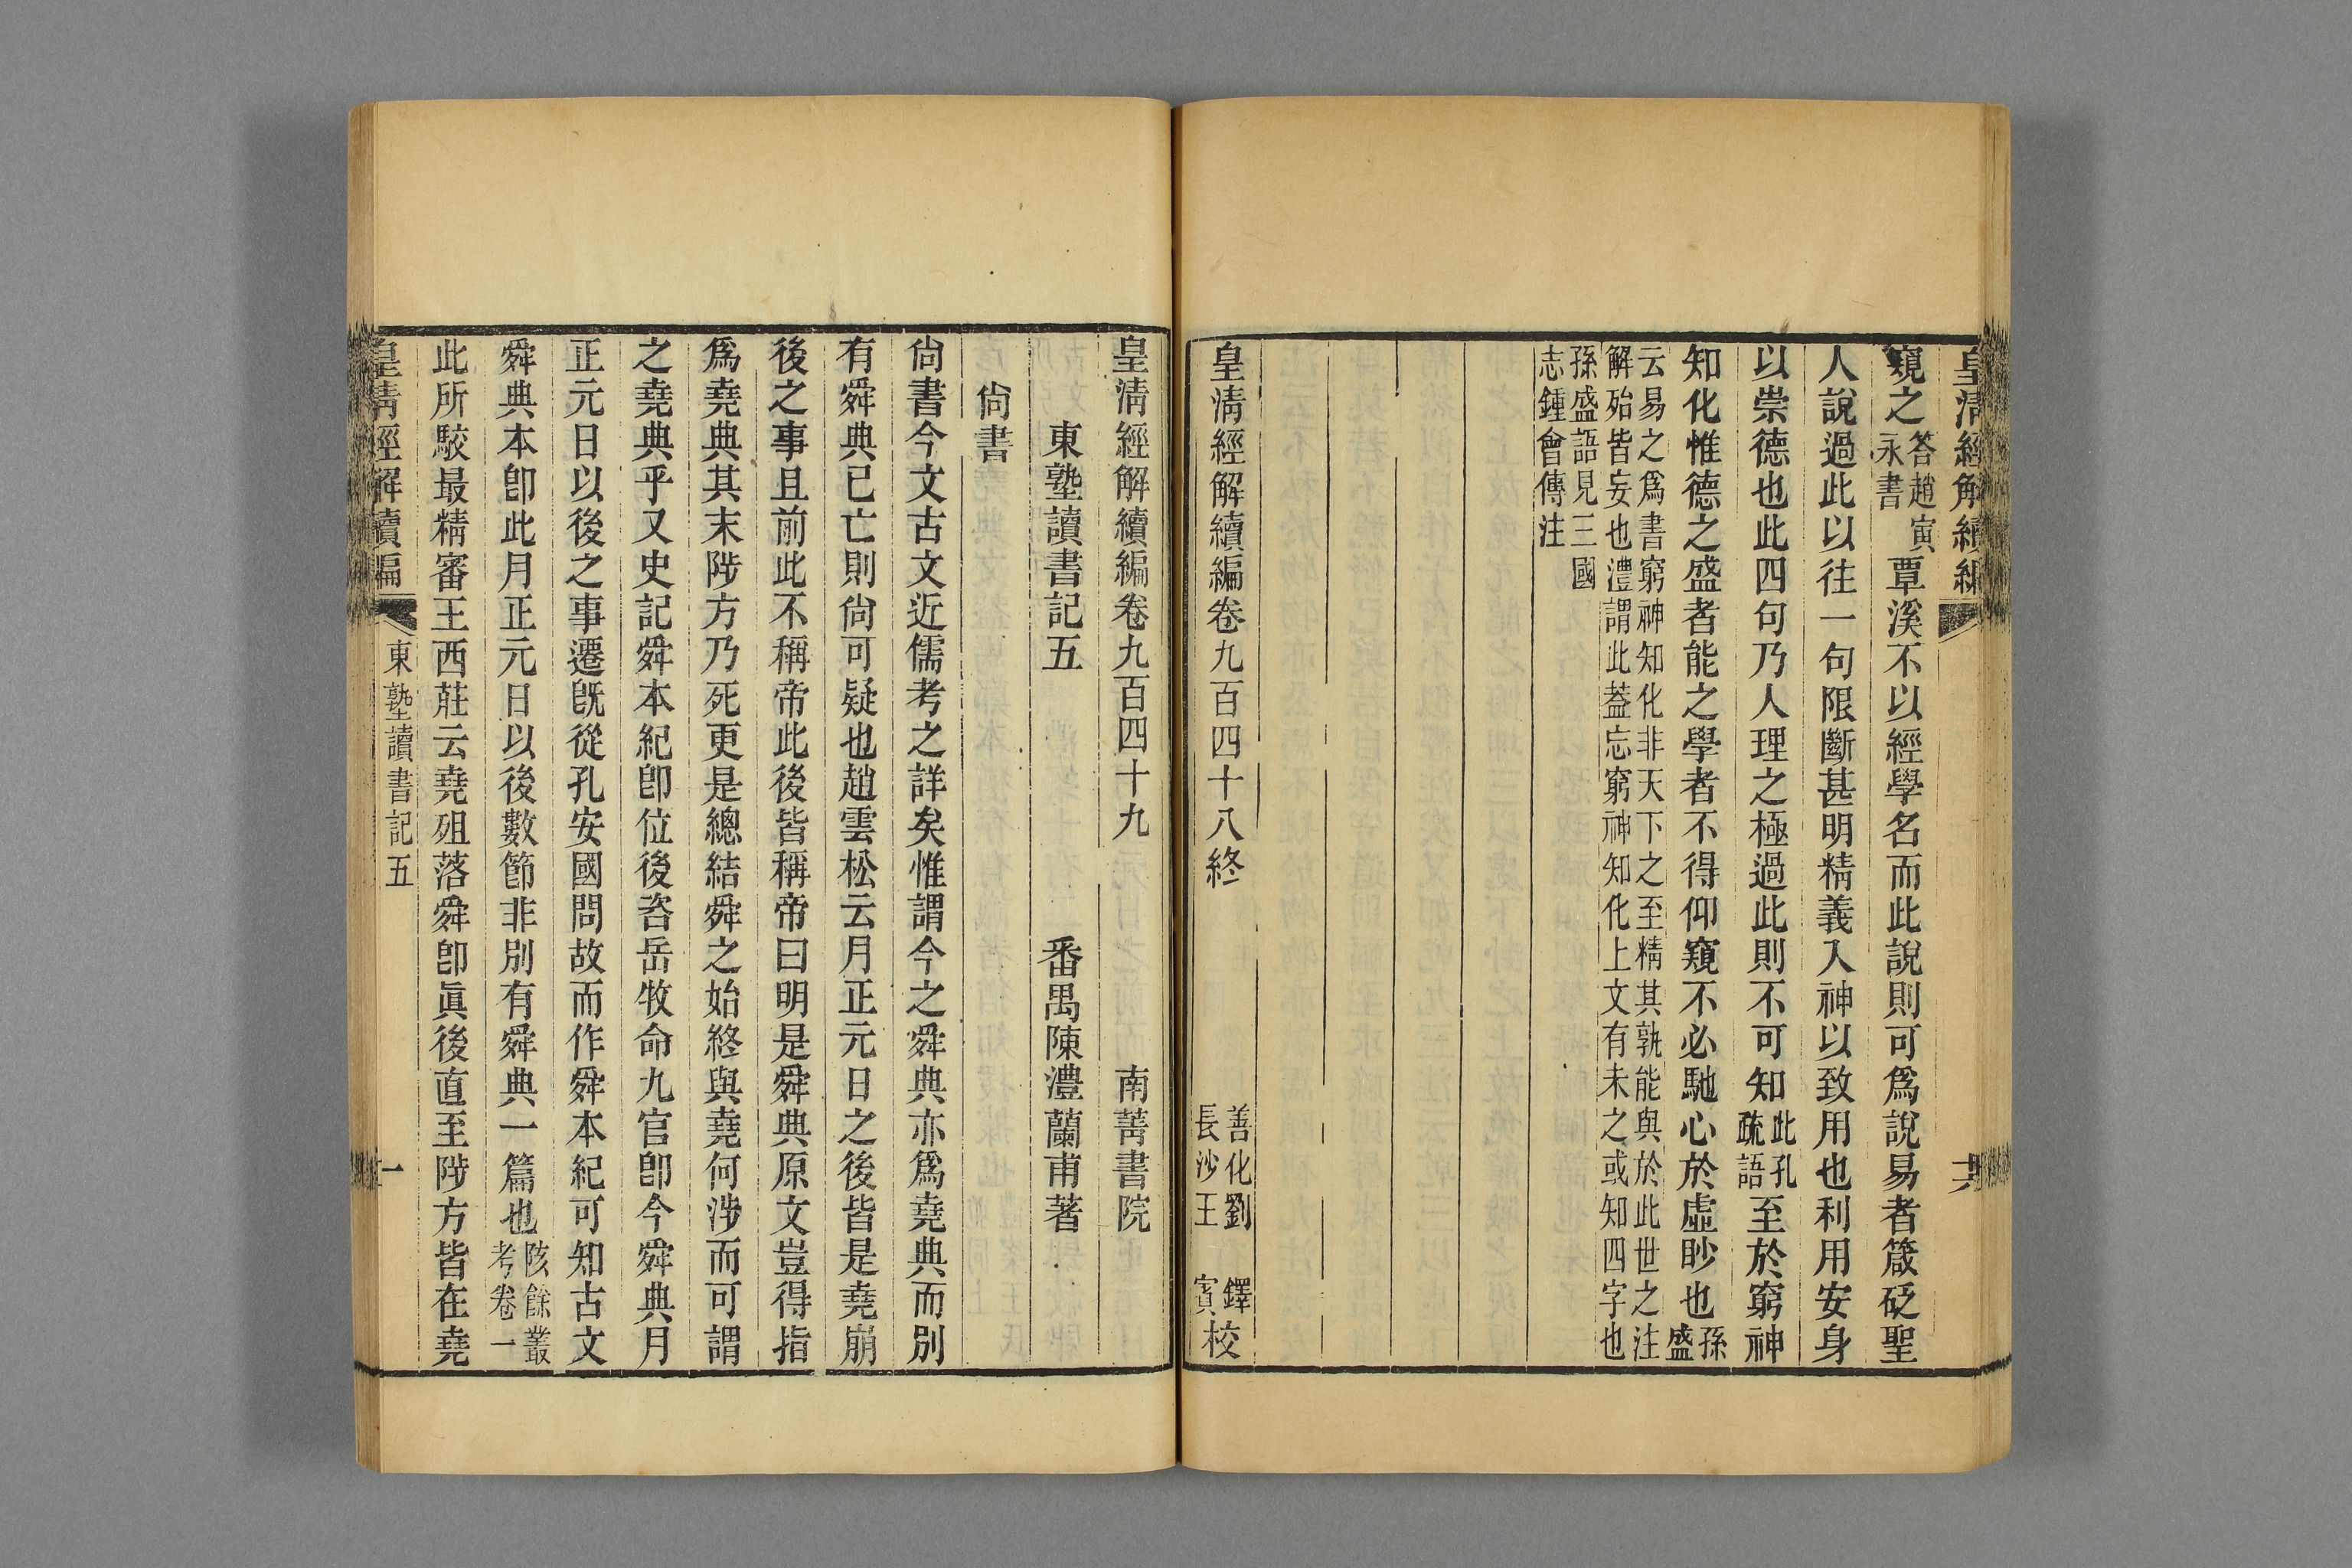 皇清經解續編
窺之答趙寅永書覃溪不以經學名而此說則可爲說易者箴砭聖
人說過此以往一句限斷甚明精義入神以致用也利用安身
以崇德也此四句乃人理之極過此則不可知此孔疏語至於窮神
知化惟德之盛者能之學者不得仰窺不必馳心於虛眇也孫盛
云易之爲書窮神知化非天下之至精其孰能與於此世之注
解殆皆妄也澧謂此葢忘窮神知化上文有未之或知四字也
孫盛語見三國
志鍾會傳注
皇清經解續編卷九百四十八終
善化劉鐸
長沙王賓校
皇清經解續編卷九百四十九
南菁書院
東塾讀書記五
番禺陳澧蘭甫著
尙書
尙書今文古文近儒考之詳矣惟謂今之舜典亦爲堯典而別
有舜典已亡則尙可疑也趙雲松云月正元日之後皆是堯崩
後之事且前此不稱帝此後皆稱帝曰明是舜典原文豈得指
爲堯典其末陟方乃死更是總結舜之始終與堯何涉而可謂
之堯典乎又史記舜本紀卽位後咨岳牧命九官卽今舜典月
正元日以後之事遷旣從孔安國問故而作舜本紀可知古文
舜典本卽此月正元日以後數節非別有舜典一篇也陔餘叢考卷一
此所駮最精審王西莊云堯殂落舜卽眞後直至陟方皆在堯
皇清經解續編
東塾讀書記五
一